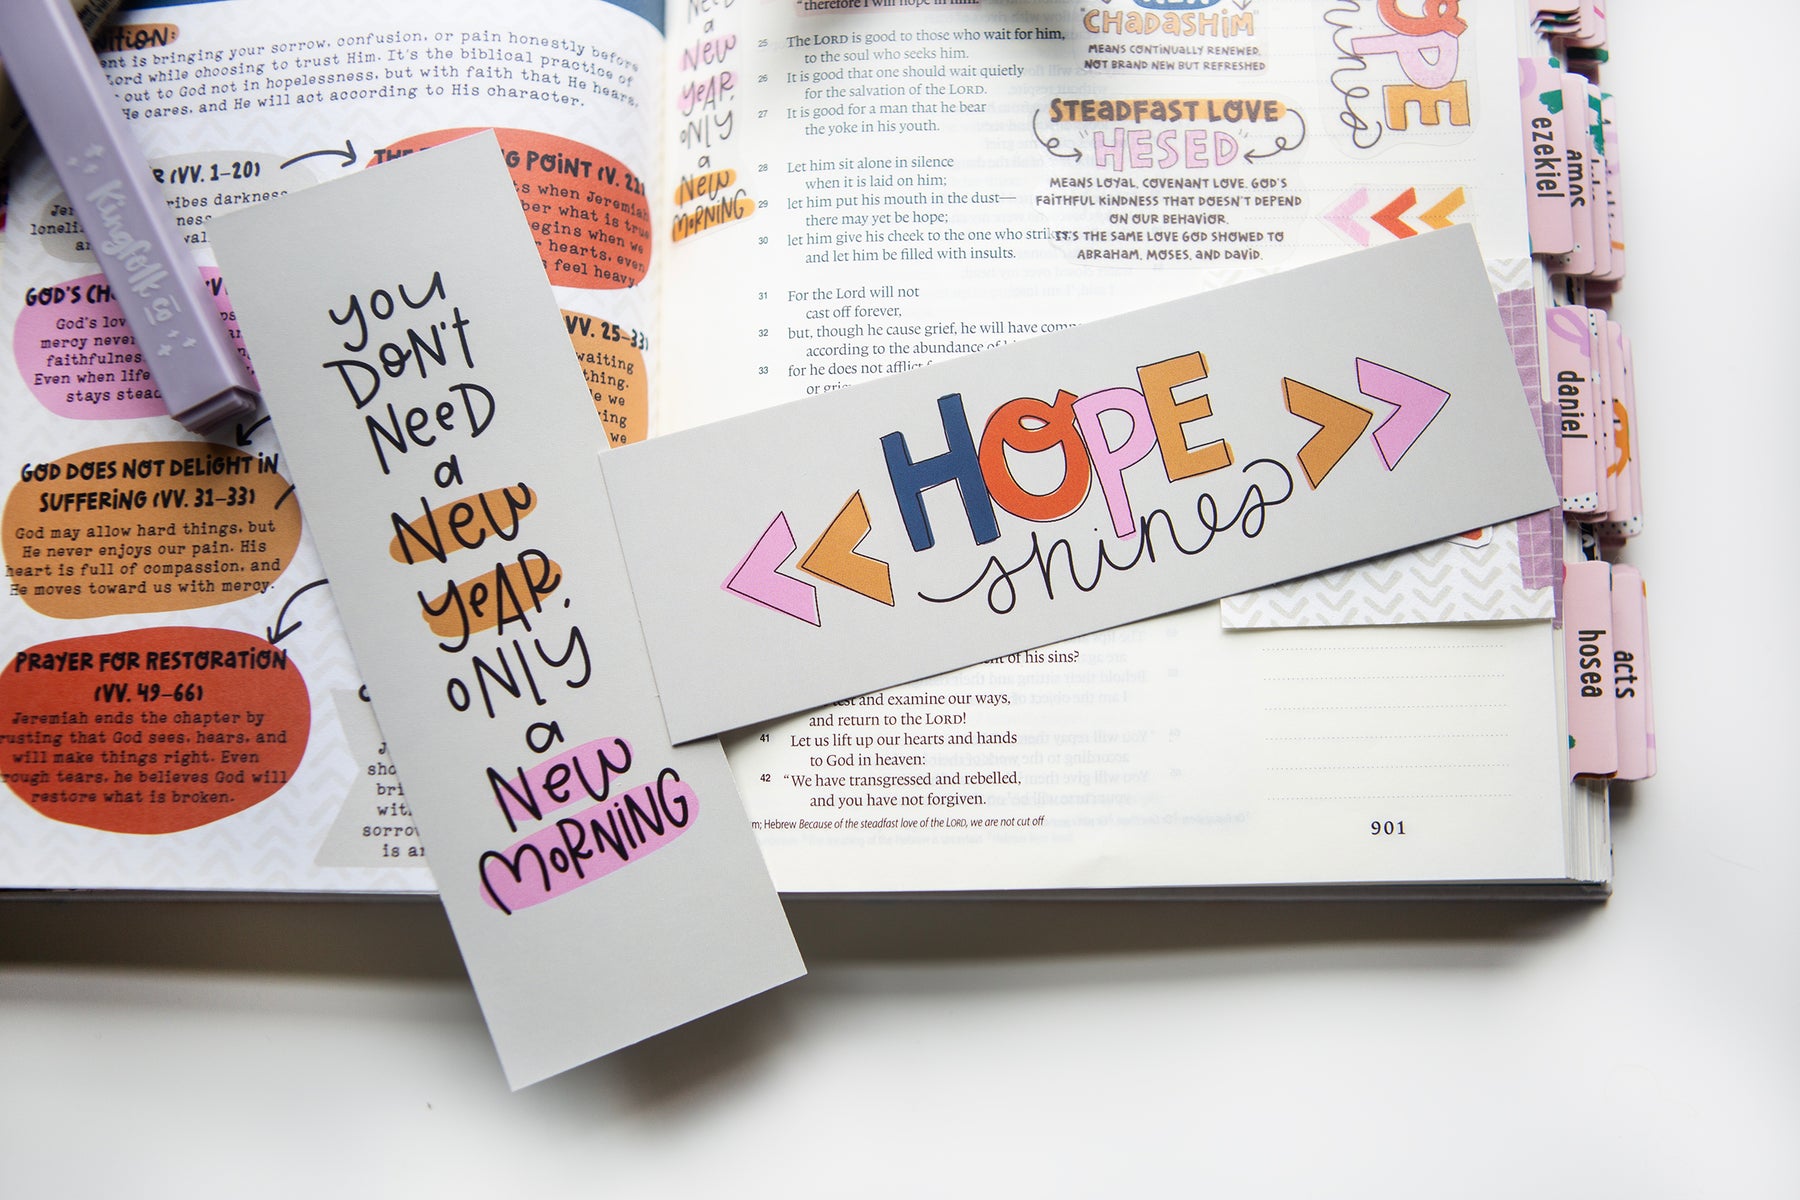 is bringing your sorrow, confusion, or pain honestly before
Lord while choosing to trust Him. It's the biblical practice of
out to God not in hopelessness, but with faith that He hears,
He cares, and He will act according to His character.
(VV. 1–20)
darkness
THE
POINT (V. 21)
when Jeremiah
what is true
when we
hearts, even
feel heavy.
GOD'S
God's
mercy never
faithfulness
Even when life
stays
VV. 25–33)
waiting
thing.
we
we
GOD DOES NOT DELIGHT IN
SUFFERING (VV. 31–33)
God may allow hard things, but
He never enjoys our pain. His
heart is full of compassion, and
He moves toward us with mercy.
PRAYER FOR RESTORATION
(VV. 49–66)
Jeremiah ends the chapter by
trusting that God sees, hears, and
will make things right. Even
through tears, he believes God will
restore what is broken.
Kingfolk co
YOU
DON'T
NEED
a
NEW
YEAR,
ONLY
a
NEW
MORNING
NEED
a
NEW
YEAR,
ONLY
a
NEW
MORNING
"therefore I will hope in him."
25 The LORD is good to those who wait for him,
to the soul who seeks him.
26 It is good that one should wait quietly
for the salvation of the LORD.
27 It is good for a man that he bear
the yoke in his youth.
28 Let him sit alone in silence
when it is laid on him;
29 let him put his mouth in the dust—
there may yet be hope;
30 let him give his cheek to the one who strikes
and let him be filled with insults.
31 For the Lord will not
cast off forever,
32 but, though he cause grief, he will have
according to the abundance of
33 for he does not afflict
or
"CHADASHIM"
MEANS CONTINUALLY RENEWED,
NOT BRAND NEW BUT REFRESHED
STEADFAST LOVE
"HESED"
MEANS LOYAL, COVENANT LOVE. GOD'S
FAITHFUL KINDNESS THAT DOESN'T DEPEND
ON OUR BEHAVIOR.
IT'S THE SAME LOVE GOD SHOWED TO
ABRAHAM, MOSES, AND DAVID.
HOPE
shines
of his sins?
and examine our ways,
and return to the LORD!
41 Let us lift up our hearts and hands
to God in heaven:
42 "We have transgressed and rebelled,
and you have not forgiven.
Hebrew Because of the steadfast love of the LORD, we are not cut off
901
ezekiel
amos
daniel
hosea
acts